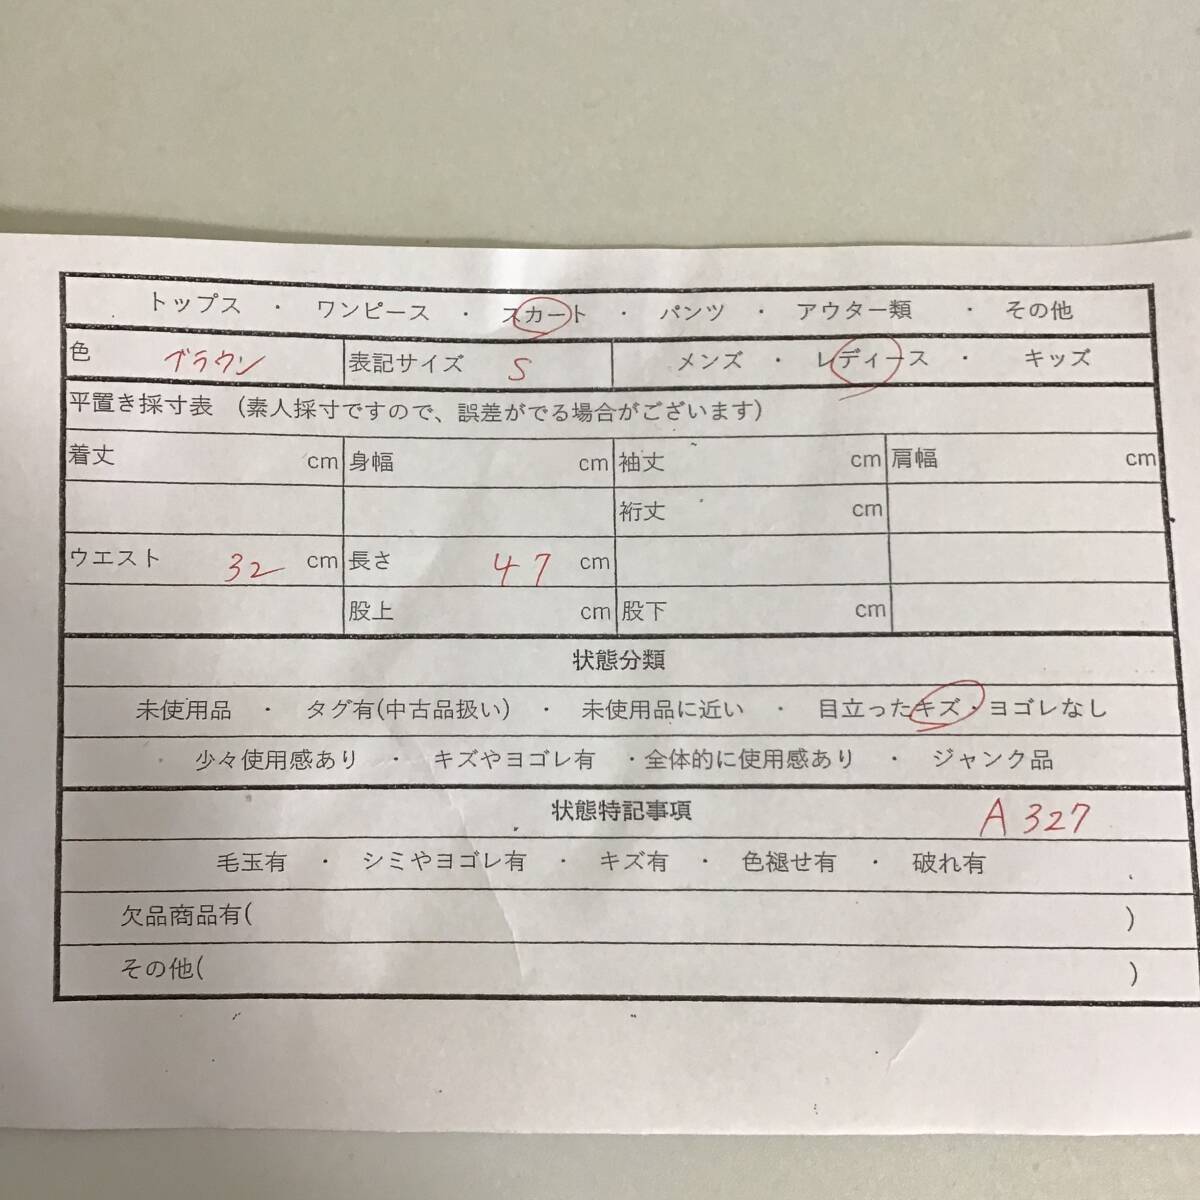 トップス ・ ワンピース ・ スカート ・ パンツ ・ アウター類 ・ その他
色 ブラウン 表記サイズ S メンズ ・ レディース ・ キッズ
平置き採寸表 (素人採寸ですので、誤差がでる場合がございます)
着丈 cm 身幅 cm 袖丈 cm 肩幅 cm
裄丈 cm
ウエスト 32 cm 長さ 47 cm
股上 cm 股下 cm
状態分類
未使用品 ・ タグ有(中古品扱い) ・ 未使用品に近い ・ 目立ったキズ・ヨゴレなし
少々使用感あり ・ キズやヨゴレ有 ・全体的に使用感あり ・ ジャンク品
状態特記事項 A 327
毛玉有 ・ シミやヨゴレ有 ・ キズ有 ・ 色褪せ有 ・ 破れ有
欠品商品有( )
その他( )